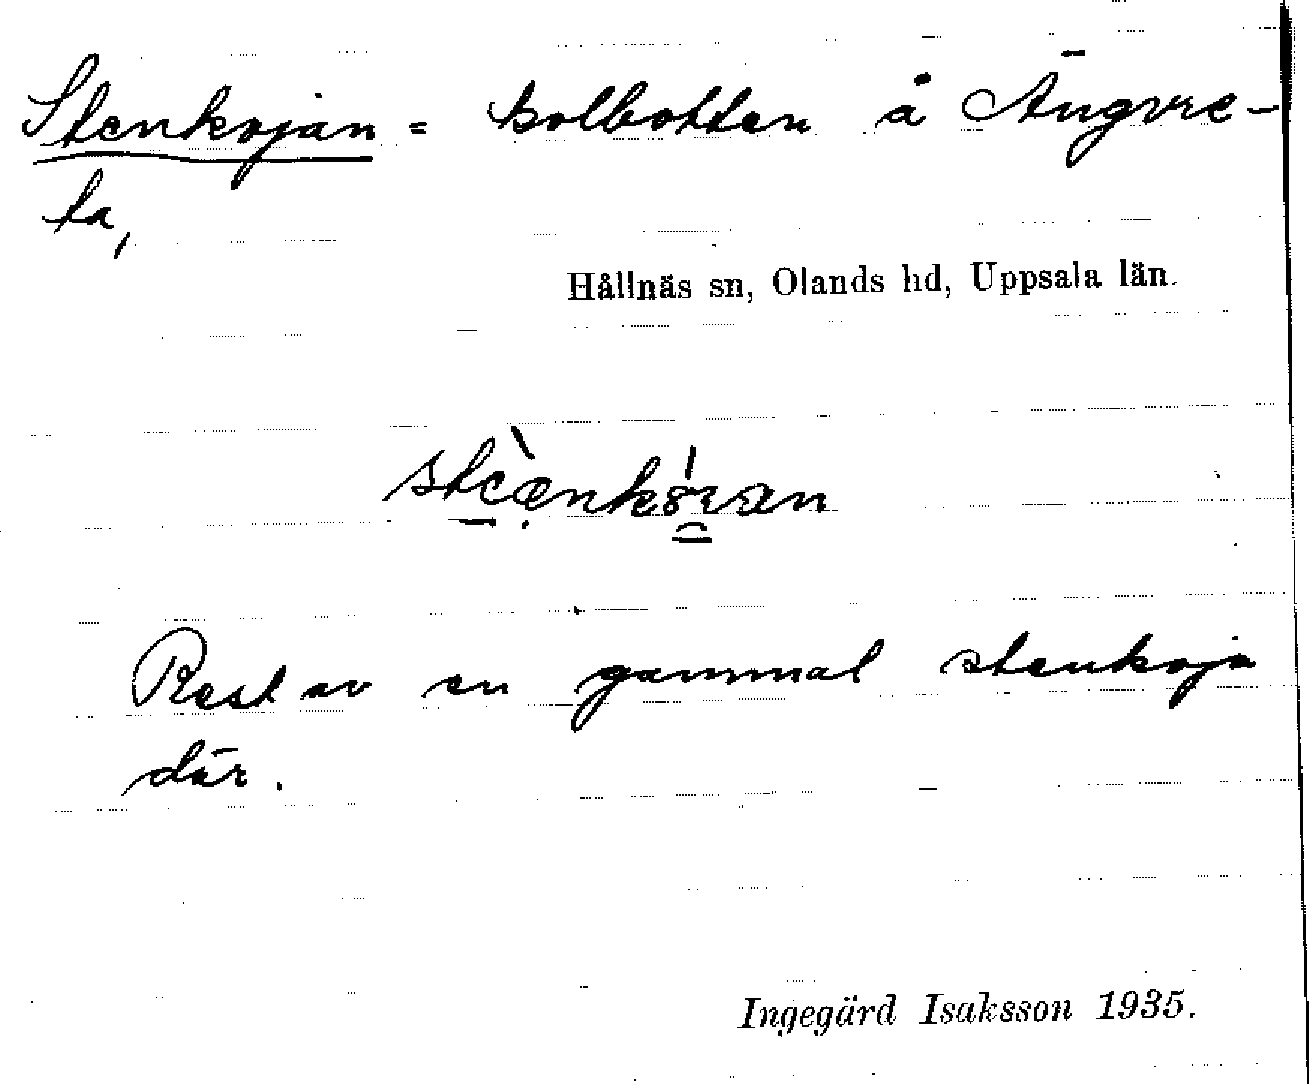 Stenkojan = kolbotten å Ängvre-
ta,
Hållnäs sn, Olands hd, Uppsala län.
Rest av en gammal stenkoja
där.
Ingegärd Isaksson 1935.